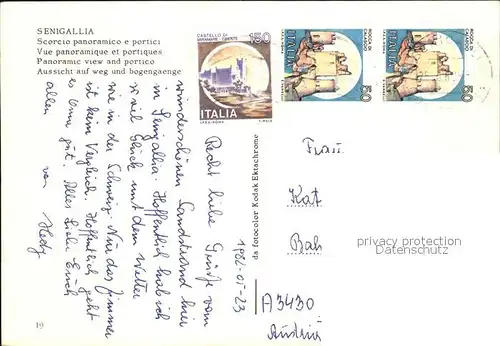 SENIGALLIA
Scorcio panoramico e portici
Vue panoramique et portiques
Panoramic view and portico
Aussicht auf weg und bogengaenge
CASTELLO DI
MIRAMARE - TRIESTE
150
ITALIA
ROCCA DI
CALASCIO
ITALIA
50
ROCCA DI
CALASCIO
ITALIA
50
Recht liebe Grüße vom
wunderschönen Sandstrand hier
in Senigallia. Hoffentlich hab ich
so viel Glück mit dem Wetter
wie in der Schweiz. Nur das Zimmer
ist kein Vergleich. Hoffentlich geht
es Omi gut. Alles Liebe Euch
allen von
Hedy
1982-07-23
da fotocolor Kodak Ektachrome
Frau
Kat
Bah
privacy protection
Datenschutz
A 3430
Austria
19